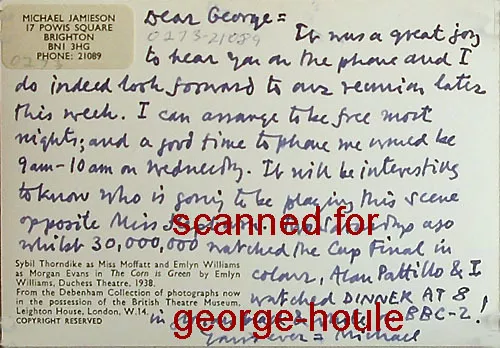 MICHAEL JAMIESON
17 POWIS SQUARE
BRIGHTON
BN1 3HG
PHONE: 21089
0273
Dear George =
0273-21089
It was a great joy
to hear you on the phone and I
do indeed look forward to our reunion later
this week. I can arrange to be free most
nights, and a good time to phone me would be
9am-10am on Wednesday. It will be interesting
to know who is going to be playing this scene
opposite Miss
Saturdays ago
whilst 30,000,000 watched the Cup Final in
colour, Alan Pattillo & I
watched DINNER AT 8
in BBC-2!
yours ever = Michael
Sybil Thorndike as Miss Moffatt and Emlyn Williams
as Morgan Evans in The Corn is Green by Emlyn
Williams, Duchess Theatre, 1938.
From the Debenham Collection of photographs now
in the possession of the British Theatre Museum,
Leighton House, London, W.14.
COPYRIGHT RESERVED
scanned for
george-houle